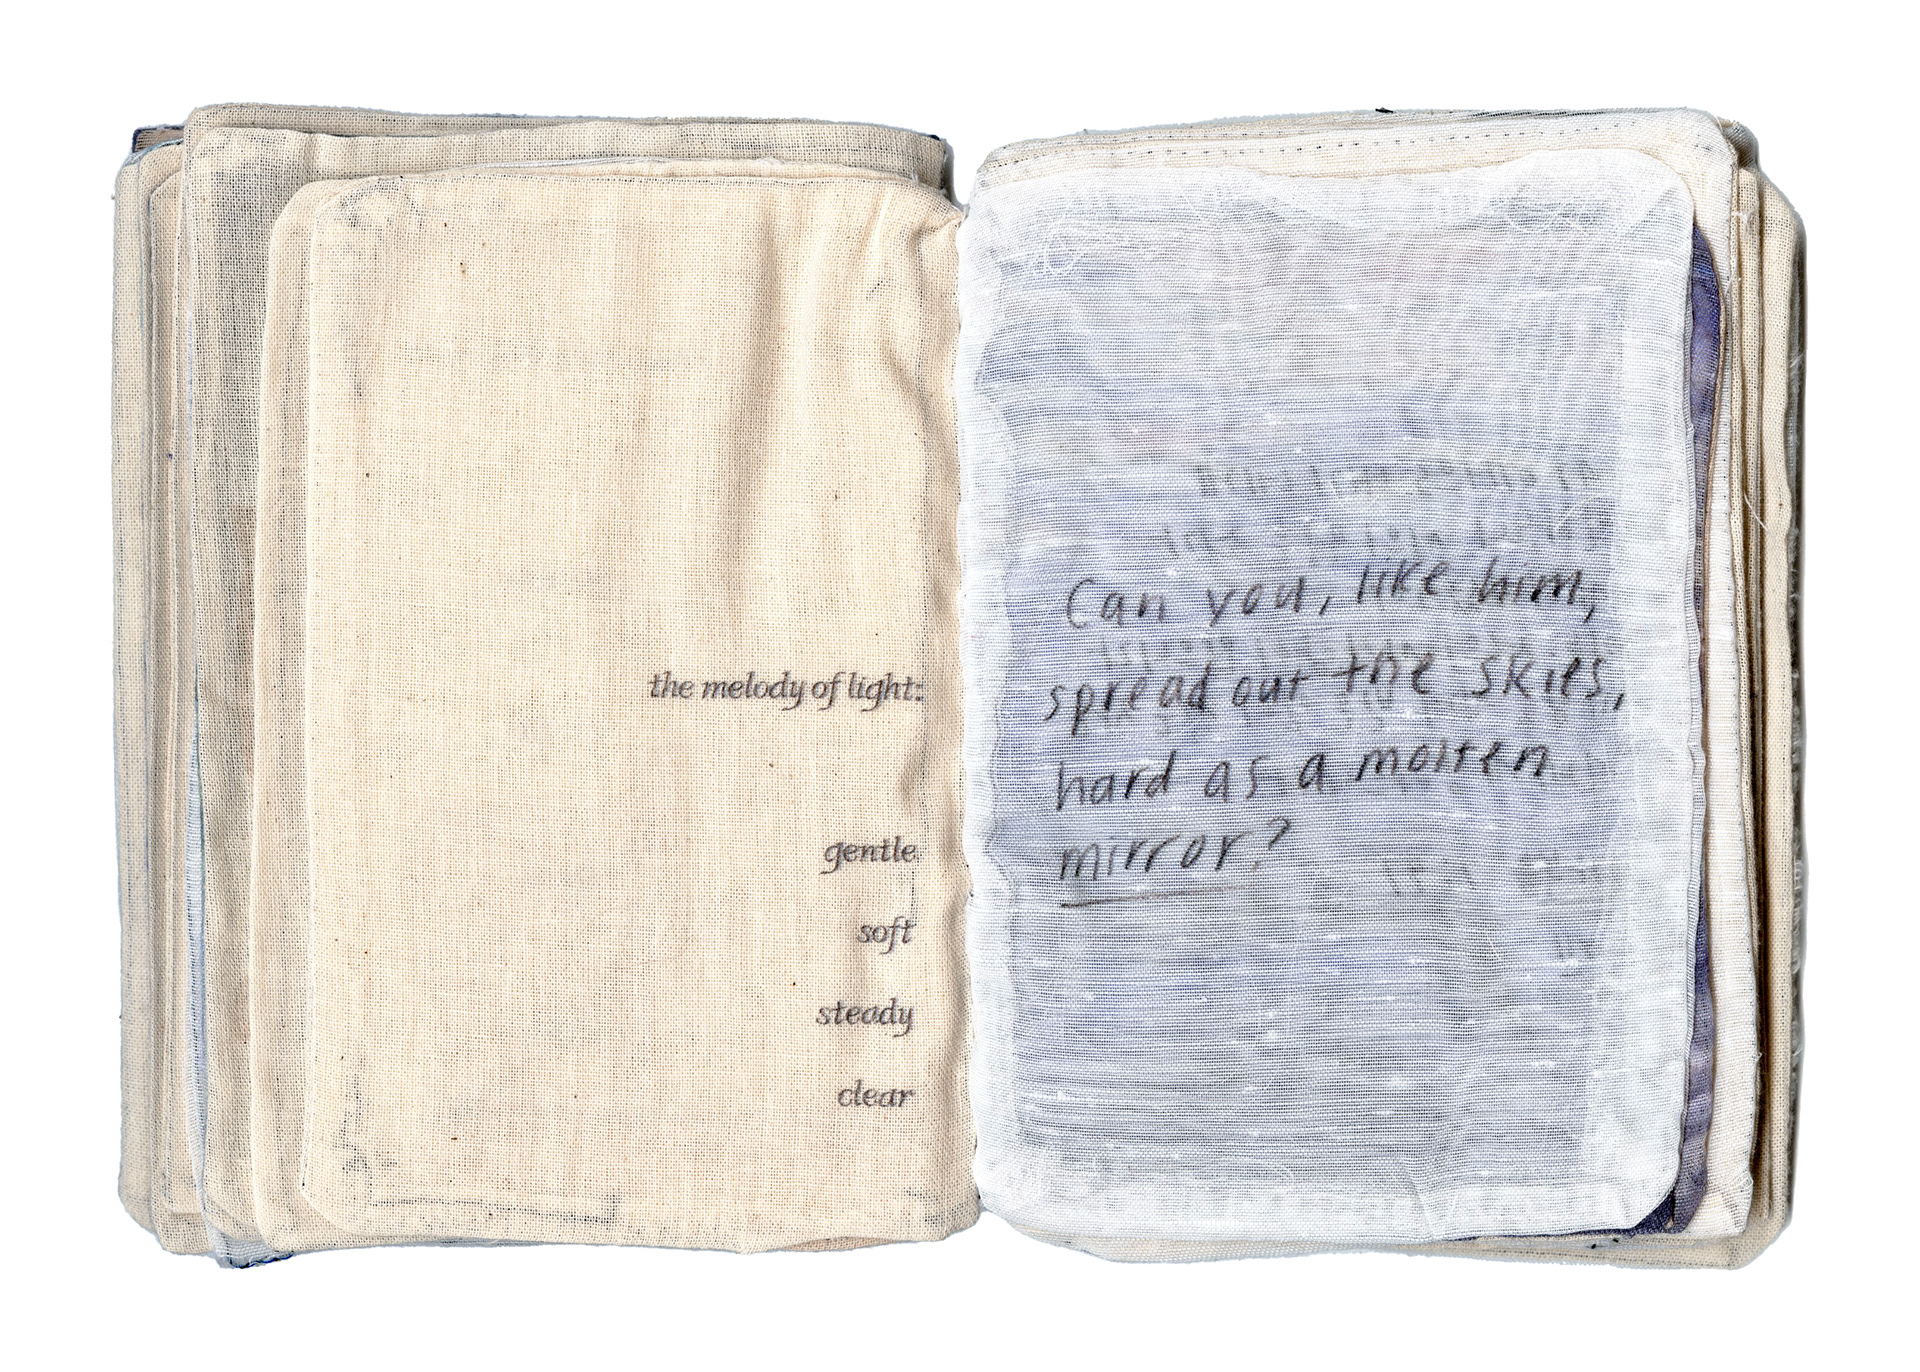 the melody of light:
gentle
soft
steady
clear
Can you, like him,
spread out the skies,
hard as a molten
mirror?